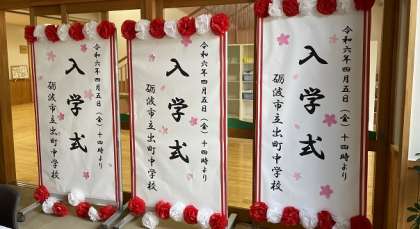 令和六年四月五日（金）十四時より
入学式
砺波市立出町中学校
令和六年四月五日（金）十四時より
入学式
砺波市立出町中学校
令和六年四月五日（金）十四時より
入学式
砺波市立出町中学校